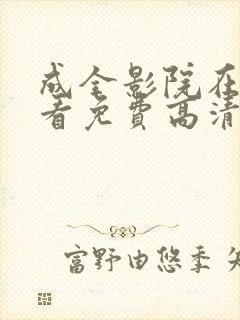 成全影院在
看免費高清
富野由悠季